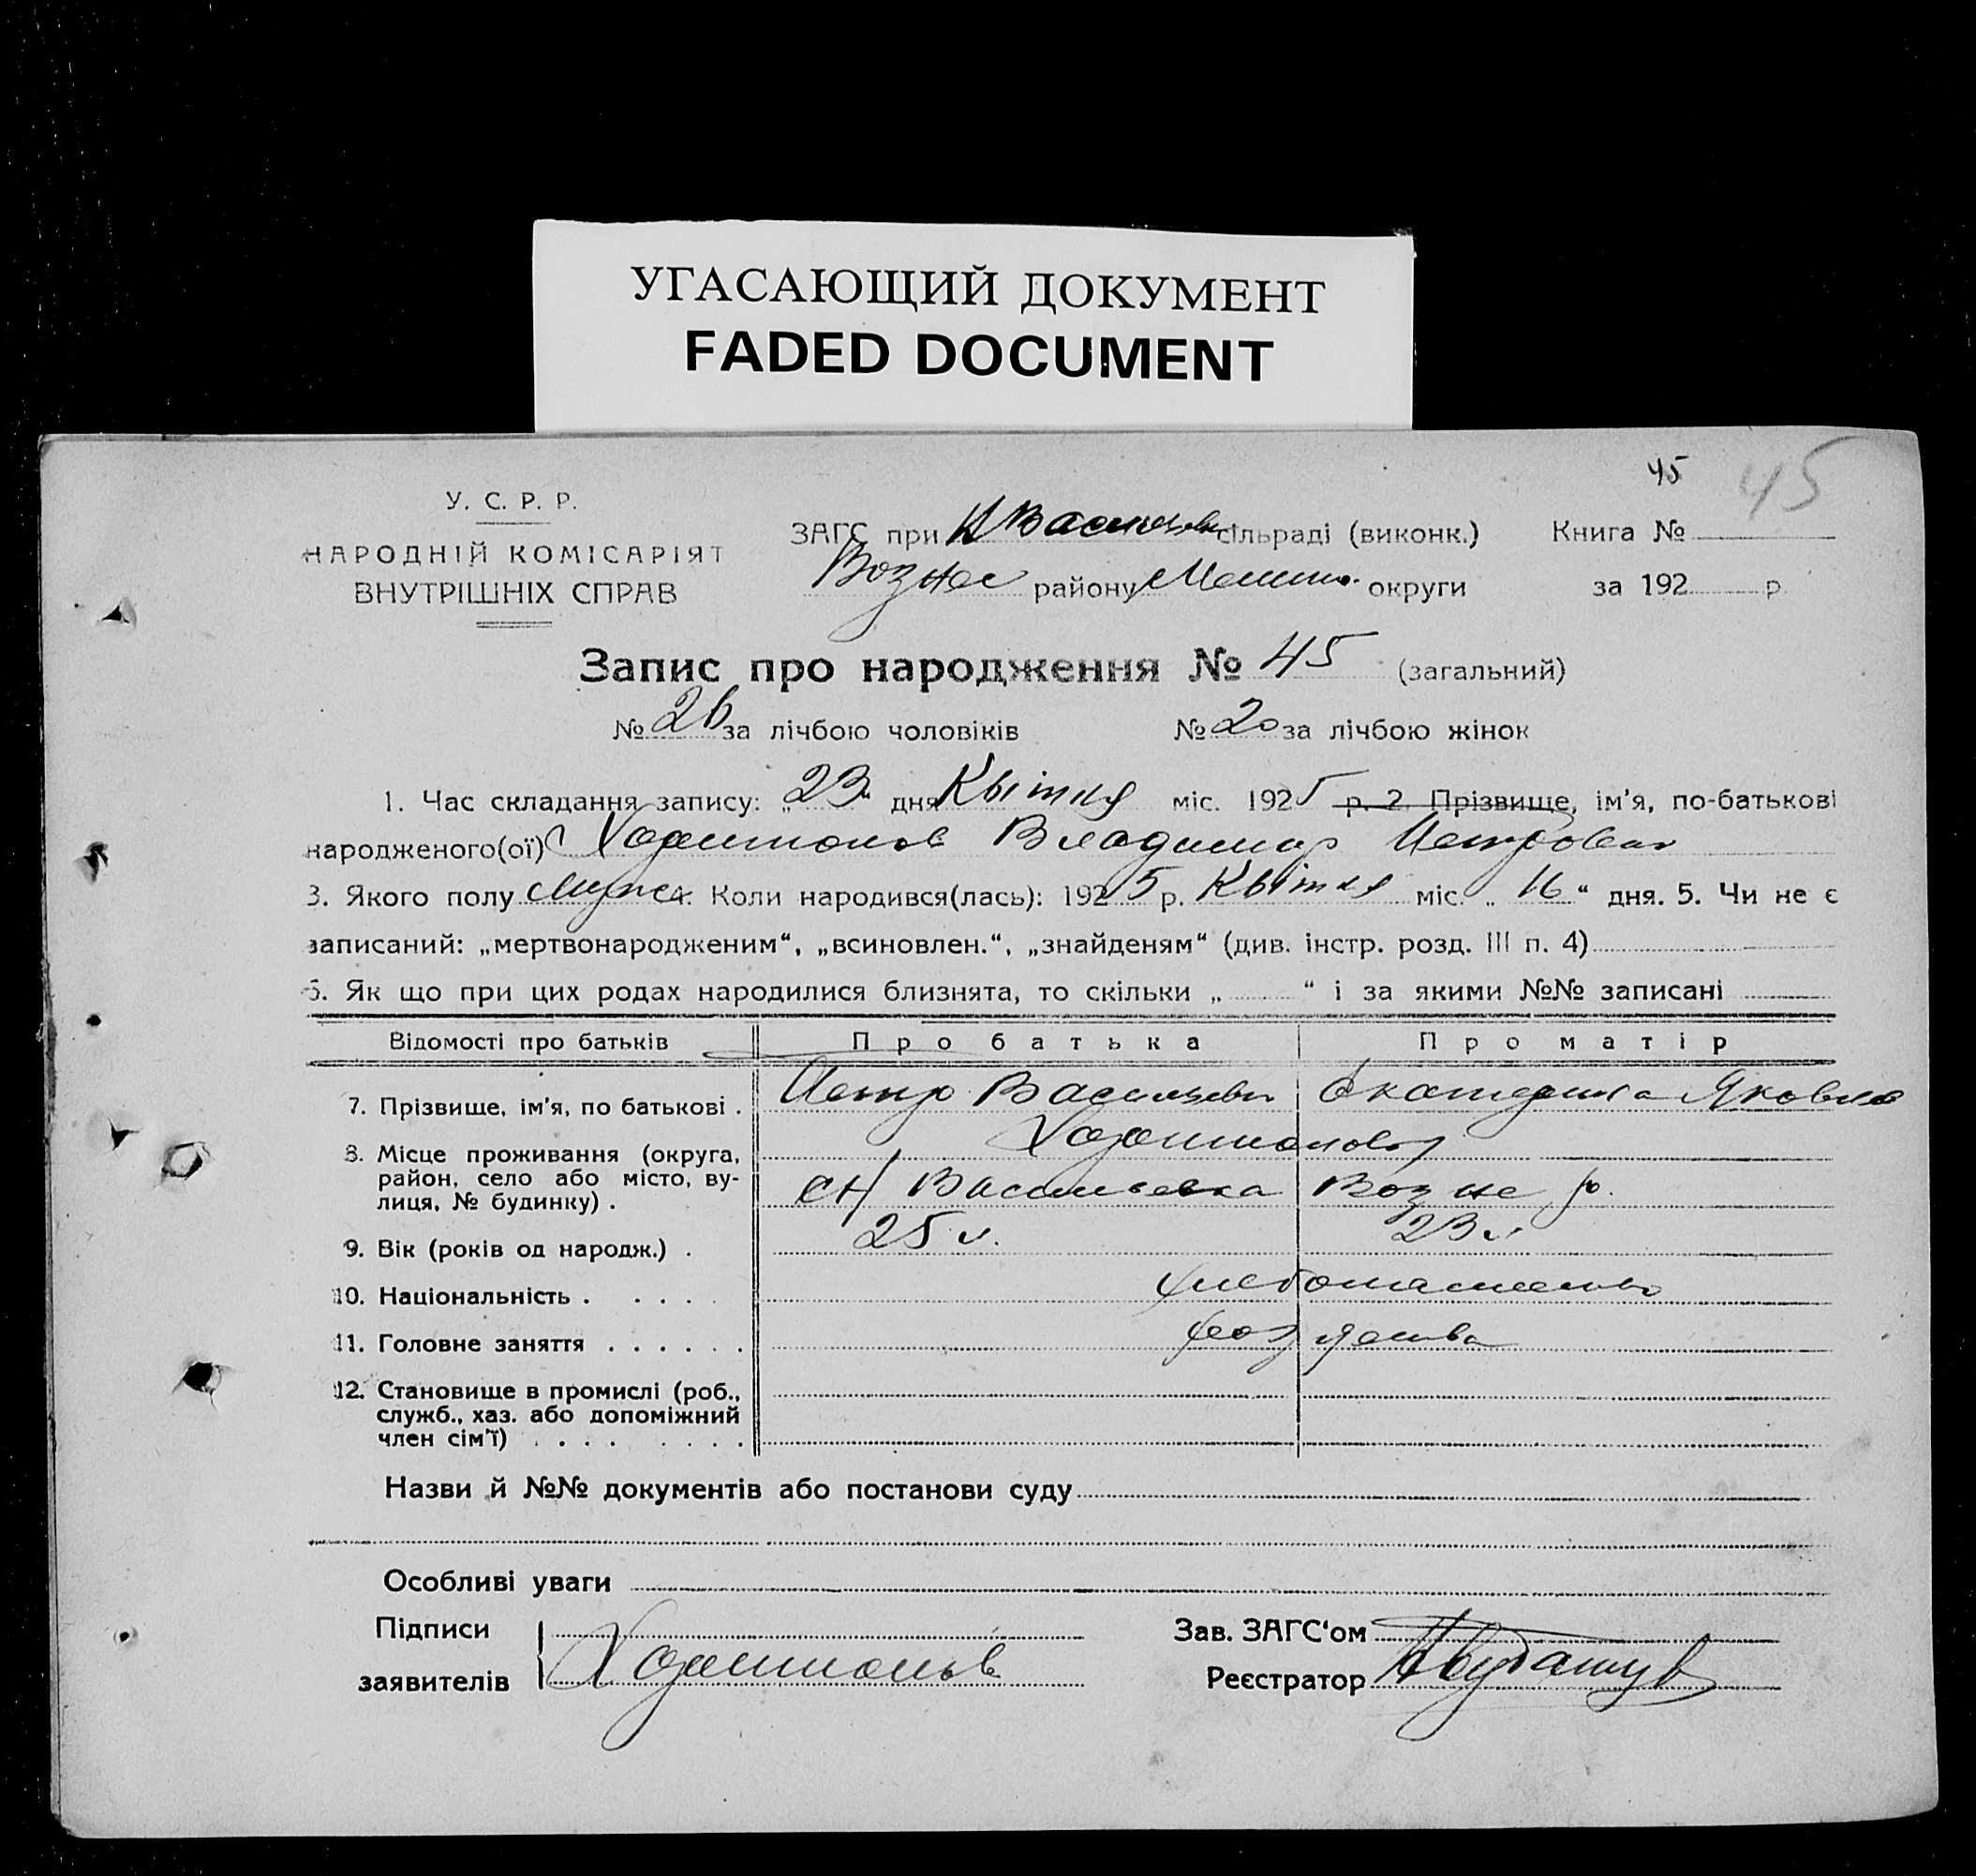 УГАСАЮЩИЙ ДОКУМЕНТ
FADED DOCUMENT
45 45
У. С. Р. Р.
НАРОДНІЙ КОМІСАРІЯТ
ВНУТРІШНІХ СПРАВ
ЗАГС при Н Василієв сільраді (виконк.) Книга №
Вознес району округи за 192 р.
Запис про народження № 45 (загальний)
№ 26 за лічбою чоловіків № 20 за лічбою жінок
1. Час складання запису: „23“ дня Квітня міс. 1925 р. 2. Прізвище, ім'я, по-батькові
народженого(ої) Владимир Петрович
3. Якого полу Коли народився(лась): 1925 р. Квітня міс. „16“ дня. 5. Чи не є
записаний: „мертвонародженим“, „всиновлен.“, „знайденям“ (див. інстр. розд. III п. 4)
6. Як що при цих родах народилися близнята, то скільки „ “ і за якими №№ записані
Відомості про батьків Про батька Про матір
7. Прізвище, ім'я, по батькові . Петр Васильевич Екатерина Яковлев
8. Місце проживання (округа,
район, село або місто, ву-
лиця, № будинку) . сН Васильевка Возне р.
9. Вік (років од народж.) . 25 л. 23 л.
10. Національність . . . . .
11. Головне заняття . . . . . .
12. Становище в промислі (роб.,
служб., хаз. або допоміжний
член сім'ї) . . . . . . . .
Назви й №№ документів або постанови суду
Особливі уваги
Підписи Зав. ЗАГС'ом
заявителів Реєстратор